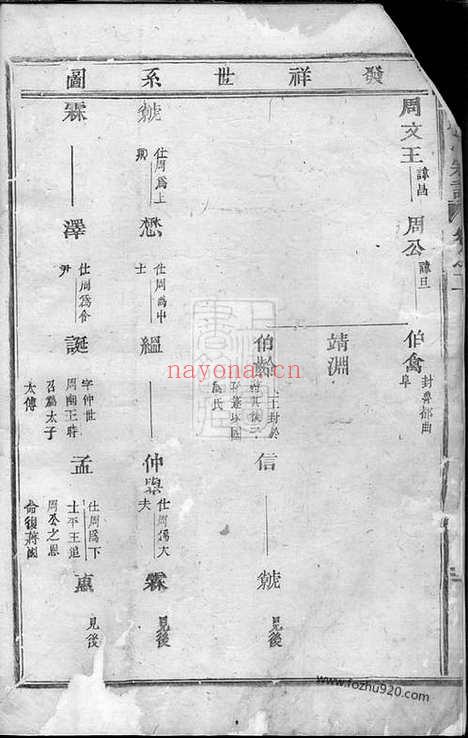 發祥世系圖
周文王 諱昌
周公 諱旦
伯禽 封魯都曲阜
靖淵
伯齡
信
虢 見後
虢 仕周爲上卿
懋 仕周爲中士
縕
仲 仕周爲大夫
霖 見後
霖
澤 仕周爲令尹
誕 字仲世 周幽王時 召爲太子太傅
孟 仕周爲下士平王追周公之恩命復蔣國
惠 見後
nayona.cn
www.fozhu920.com